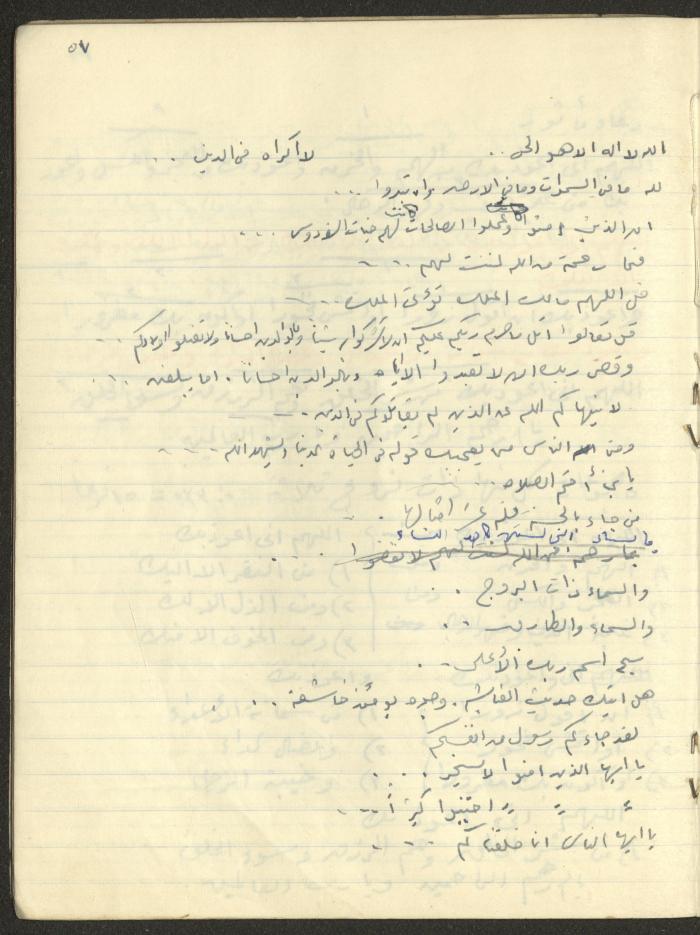 ٥٧
الله لا اله الا هو الحى .. لا اكراه فى الدين ...
لله ما فى السموات وما فى الارض وان تبدوا ...
ان الذين امنوا وعملوا الصالحات كانت لهم جنات الفردوس ...
فبما رحمة من الله لنت لهم ...
قل اللهم مالك الملك تؤتى الملك ...
قل تعالوا اتل ما حرم ربكم عليكم ان لا تشركوا به شيئا وبالوالدين احسانا ولا تقتلوا اولادكم
وقضى ربك ان لا تعبدوا الا اياه وبالوالدين احسانا . اما يبلغن ...
لا ينهاكم الله عن الذين لم يقاتلوكم فى الدين ...
ومن الناس من يعجبك قوله فى الحياة الدنيا ويشهد الله ...
يا بنى أقم الصلاة ..
من جاء بالحسنة فله عشر امثالها .
يا نساء النبى لستن كاحد النساء
والسماء ذات البروج ..
والسماء والطارق ..
سبح اسم ربك الأعلى ..
هل اتيك حديث الغاشية . وجوه يومئذ خاشعة ...
لقد جاءكم رسول من انفسكم
يا ايها الذين امنوا لا يسخر ...
" " " اجتنبوا كثيراً ...
يا ايها الناس انا خلقناكم ...